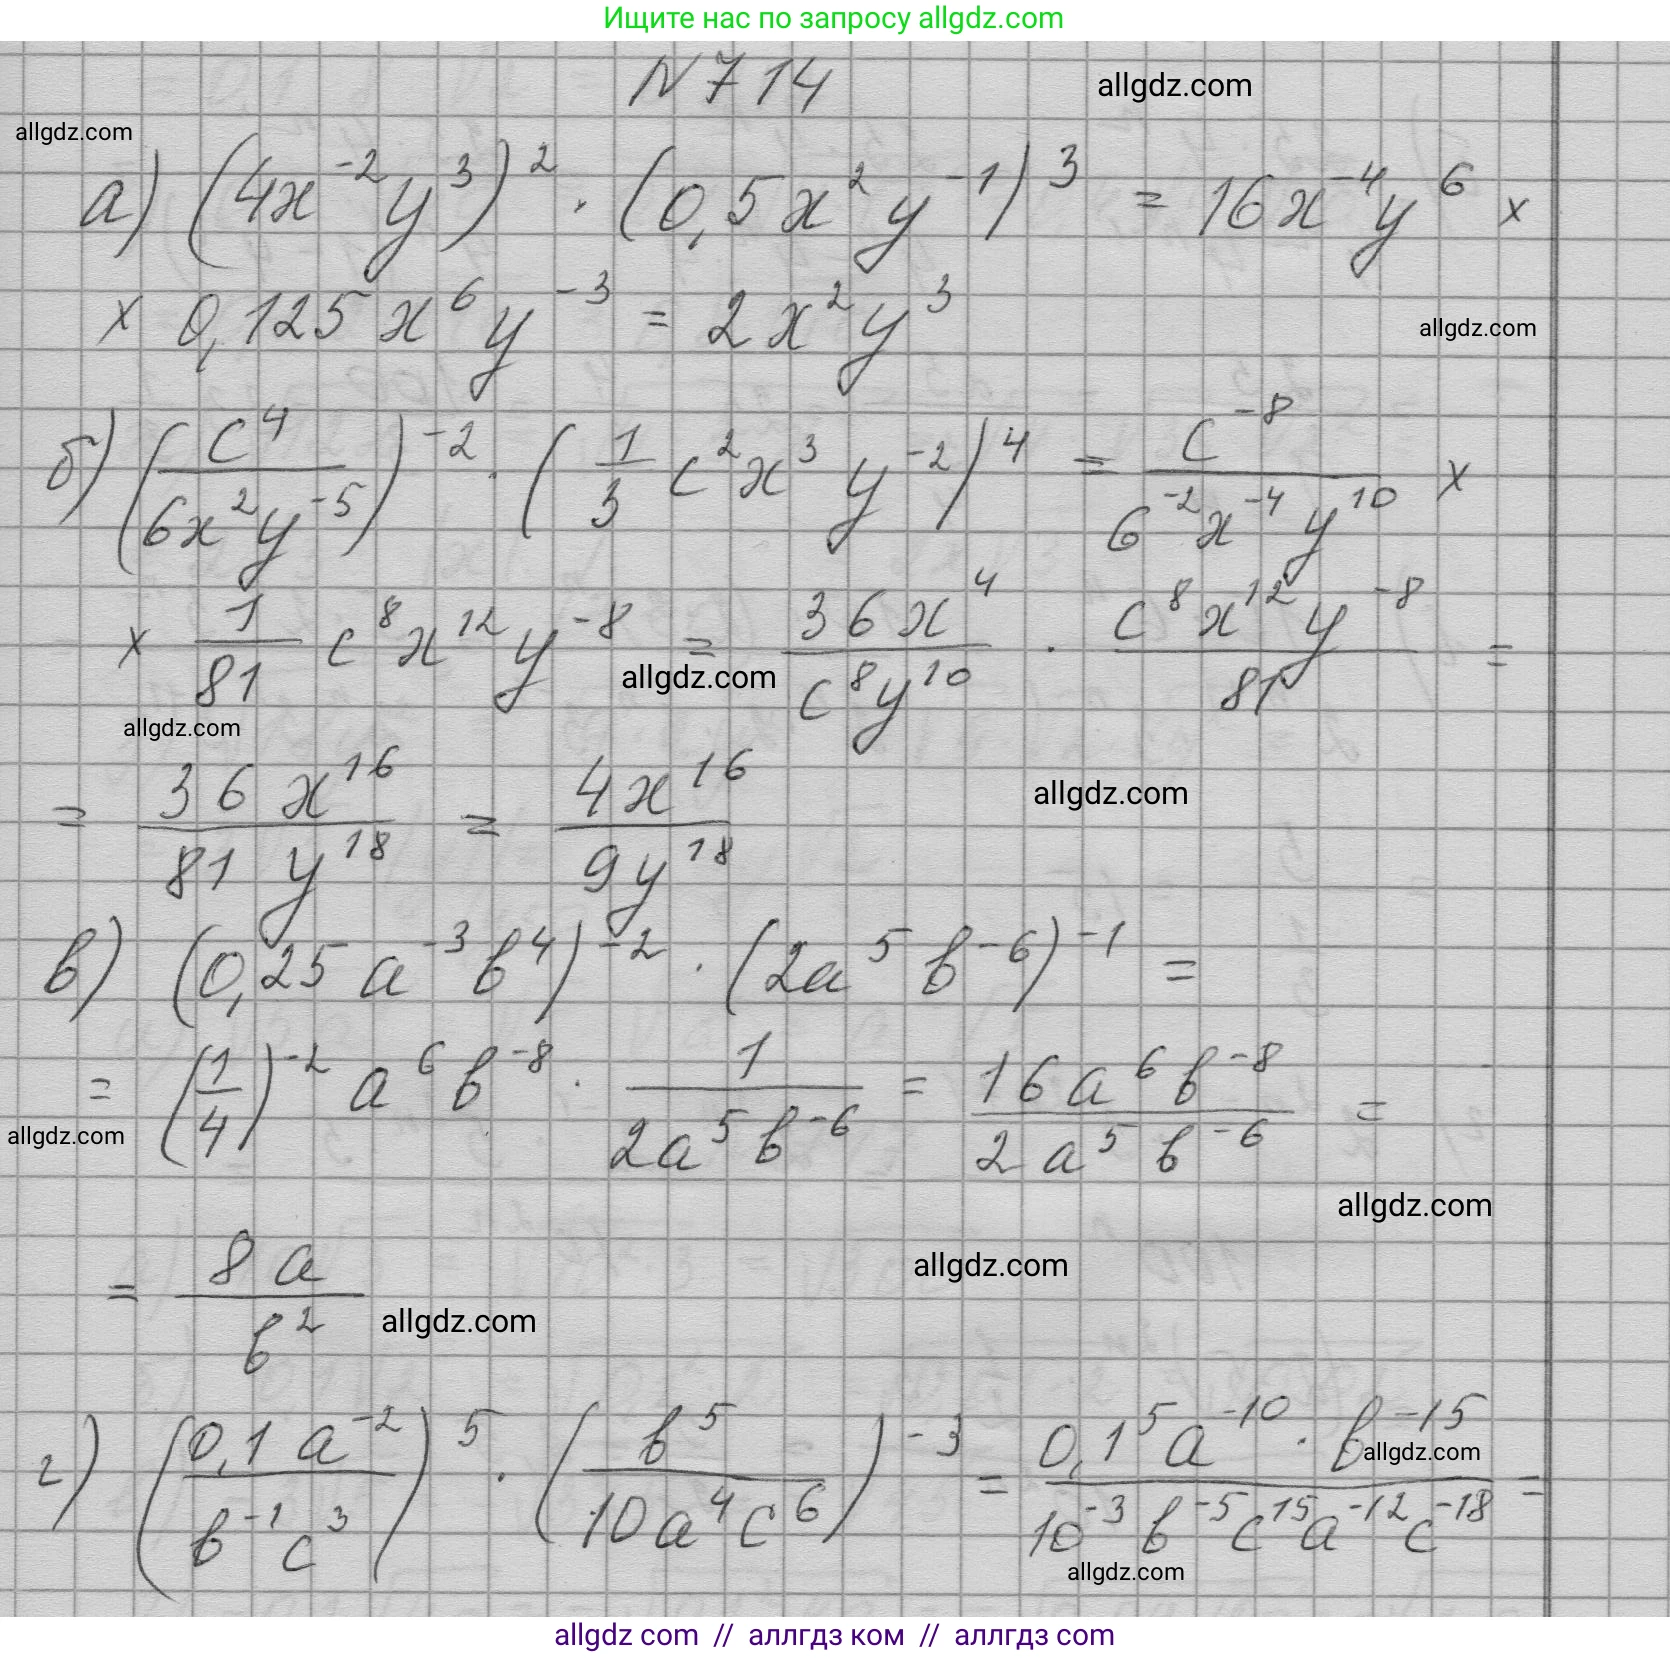 Ищите нас по запросу allgdz.com
N 714
allgdz.com
allgdz.com
а) (4x⁻²y³)² · (0,5x²y⁻¹)³ = 16x⁻⁴y⁶ ×
× 0,125x⁶y⁻³ = 2x²y³
allgdz.com
б) (c⁴/(6x²y⁻⁵))⁻² · (1/3 c²x³y⁻²)⁴ = c⁻⁸/(6⁻²x⁻⁴y¹⁰) ×
× 1/81 c⁸x¹²y⁻⁸ = 36x⁴/(c⁸y¹⁰) · c⁸x¹²y⁻⁸/81 =
allgdz.com
allgdz.com
= 36x¹⁶/(81y¹⁸) = 4x¹⁶/(9y¹⁸)
allgdz.com
в) (0,25a⁻³b⁴)⁻² · (2a⁵b⁻⁶)⁻¹ =
= (1/4)⁻² a⁶b⁻⁸ · 1/(2a⁵b⁻⁶) = 16a⁶b⁻⁸/(2a⁵b⁻⁶) =
allgdz.com
allgdz.com
= 8a/b²
allgdz.com
allgdz.com
г) (0,1a⁻²/(b⁻¹c³))⁵ · (b⁵/(10a⁴c⁶))⁻³ = 0,1⁵a⁻¹⁰ · b⁻¹⁵/(10⁻³b⁻⁵c¹⁵a⁻¹²c⁻¹⁸) =
allgdz.com
allgdz.com
allgdz com // аллгдз ком // аллгдз com